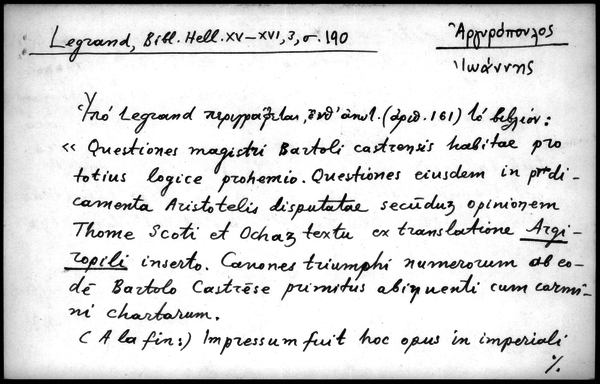 Legrand, Bibl. Hell. XV–XVI, 3, σ. 190
Ἀργυρόπουλος
Ἰωάννης
Ὑπό Legrand περιγράφεται, ἐνθ' ἀνωτ. (ἀριθ. 161) τό βιβλίον:
« Questiones magistri Bartoli castrensis habitae pro
totius logice prohemio. Questiones eiusdem in predi-
camenta Aristotelis disputatae secūduz opinionem
Thome Scoti et Ochaz textu ex translatione Argi-
ropili inserto. Canones triumphi numerorum ab eo-
dē Bartolo Castrēse primitus abinquenti cum carmi-
ni chartarum.
( A la fin:) Impressum fuit hoc opus in imperiali
%